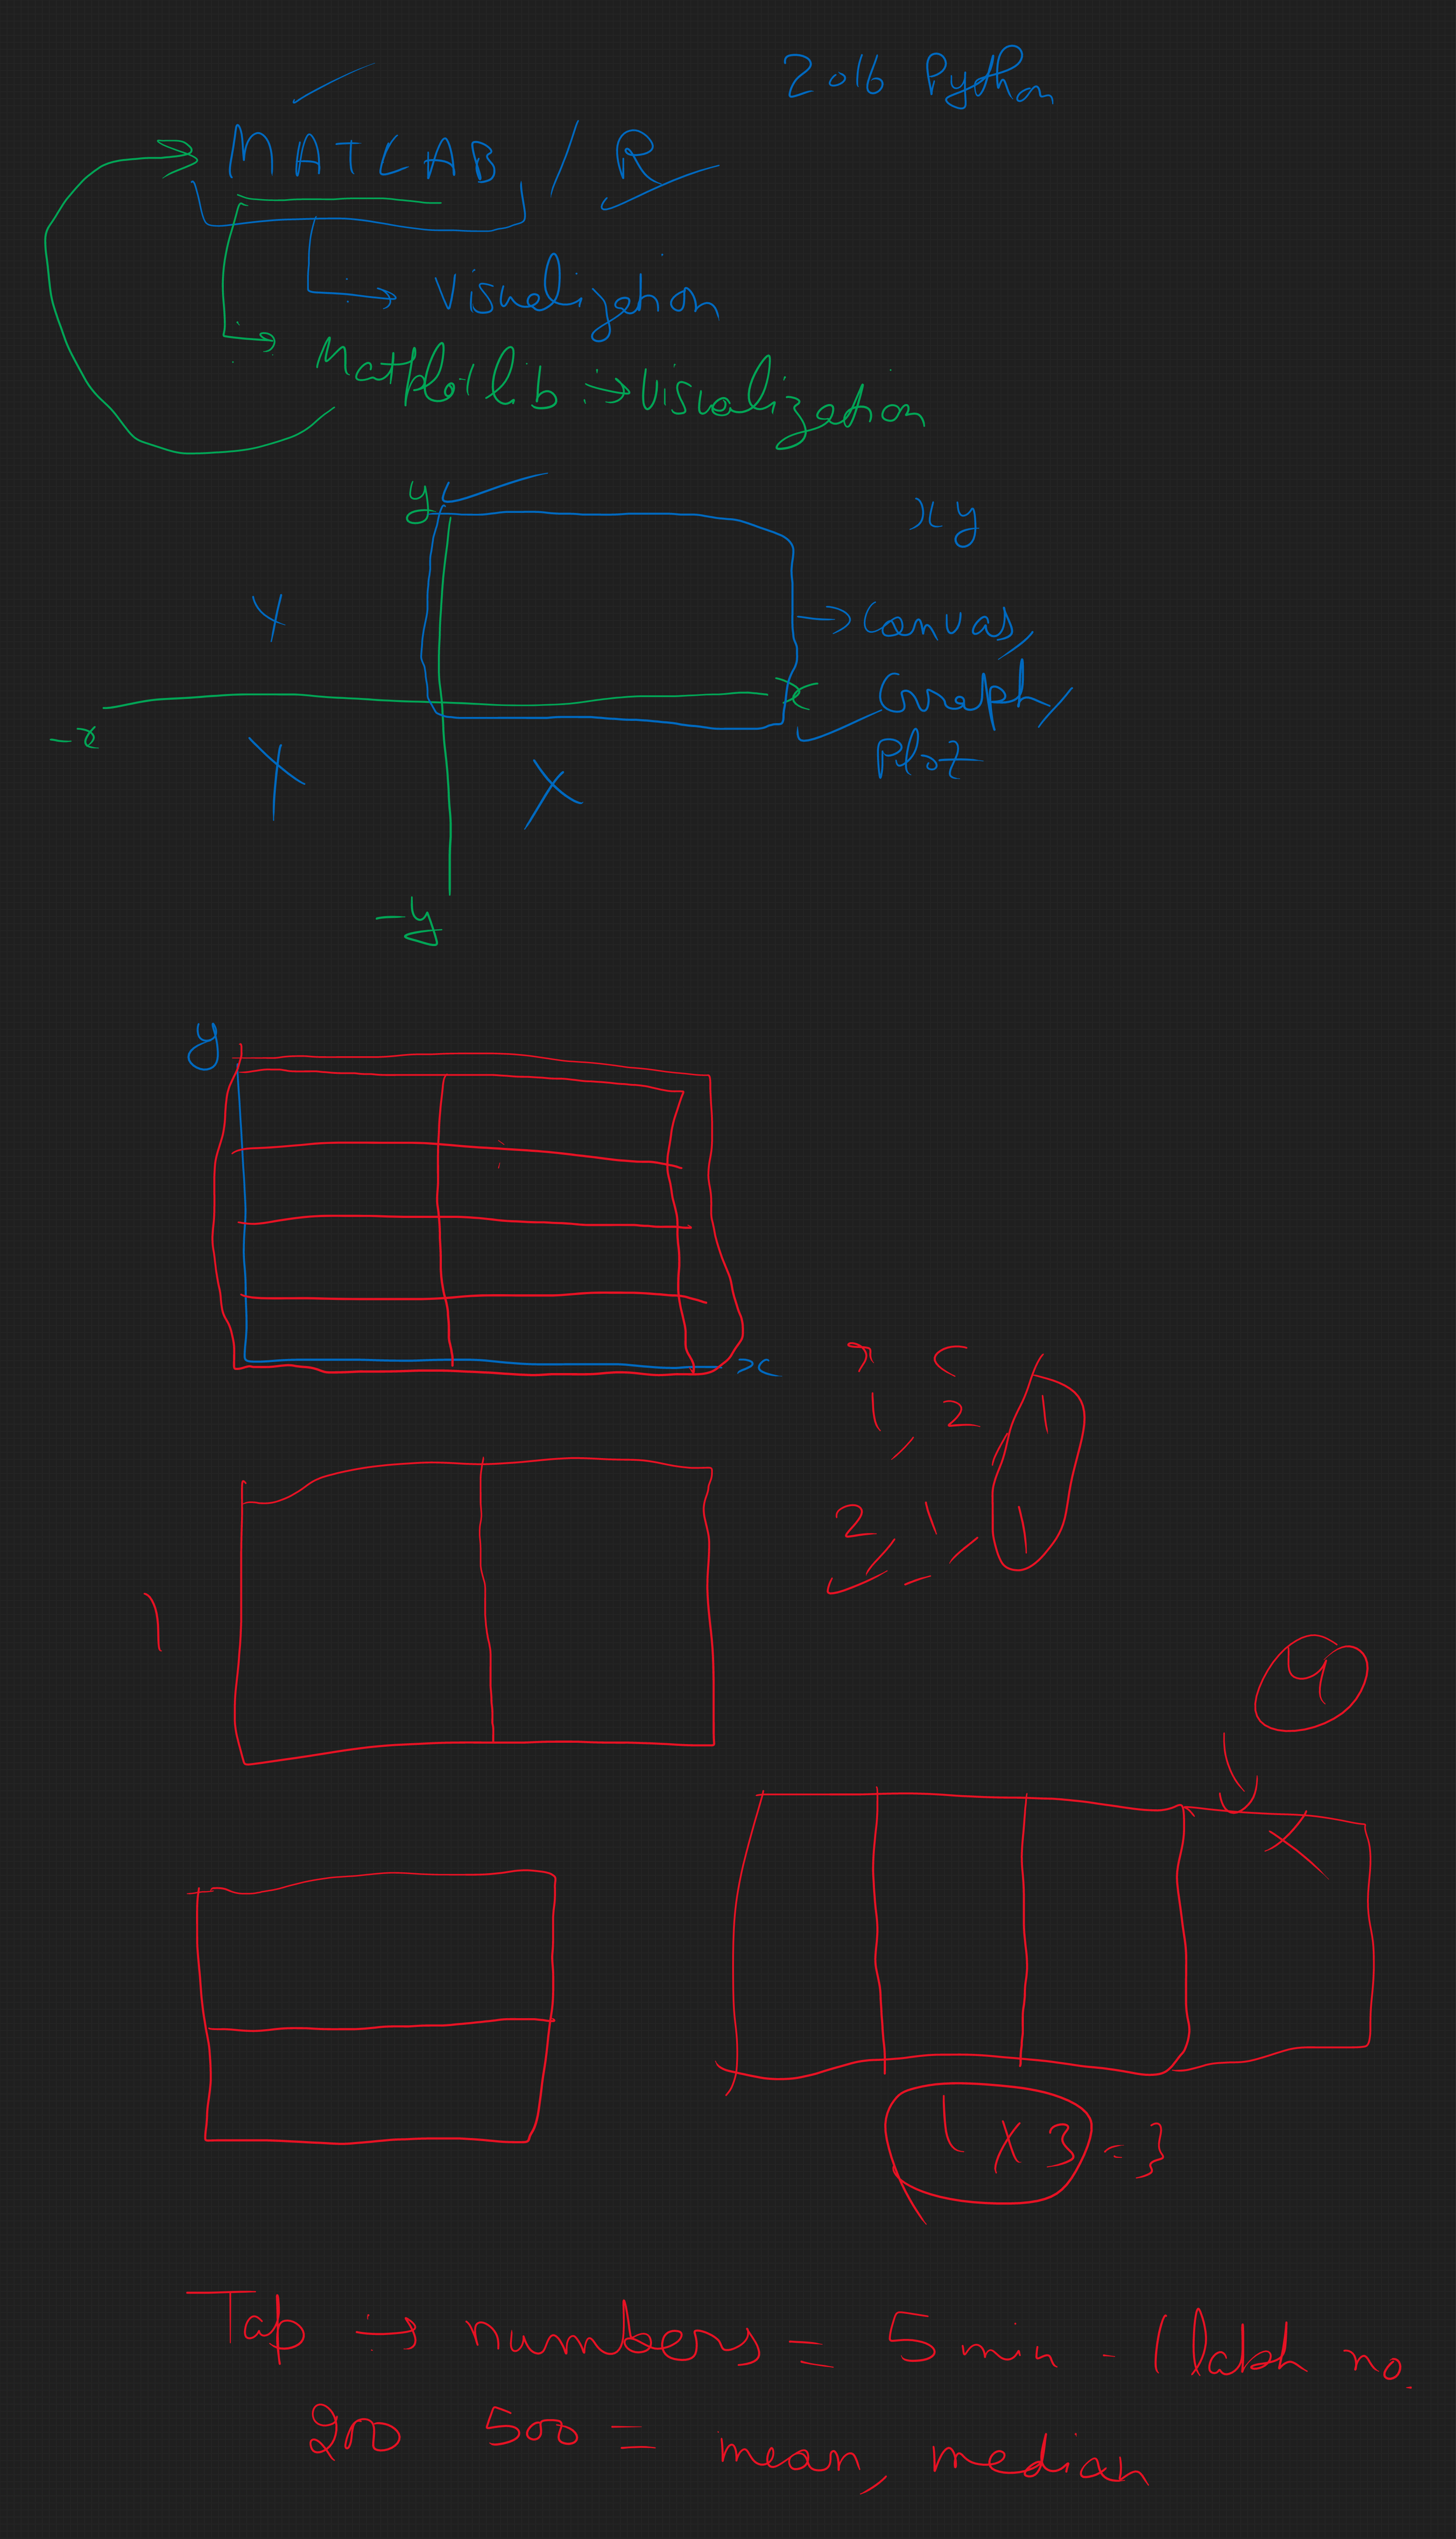 2016 Python
MATLAB / R
→ Visualization
Matplotlib → Visualization
y
xy
→ Canvas,
x
Graph,
-x
Plot
-y
y
x
r c
1, 2, 1
2, 1, 1
1
4
1 x 3 = 3
Tap → numbers = 5 min - 1 lakh no.
500 = mean, median